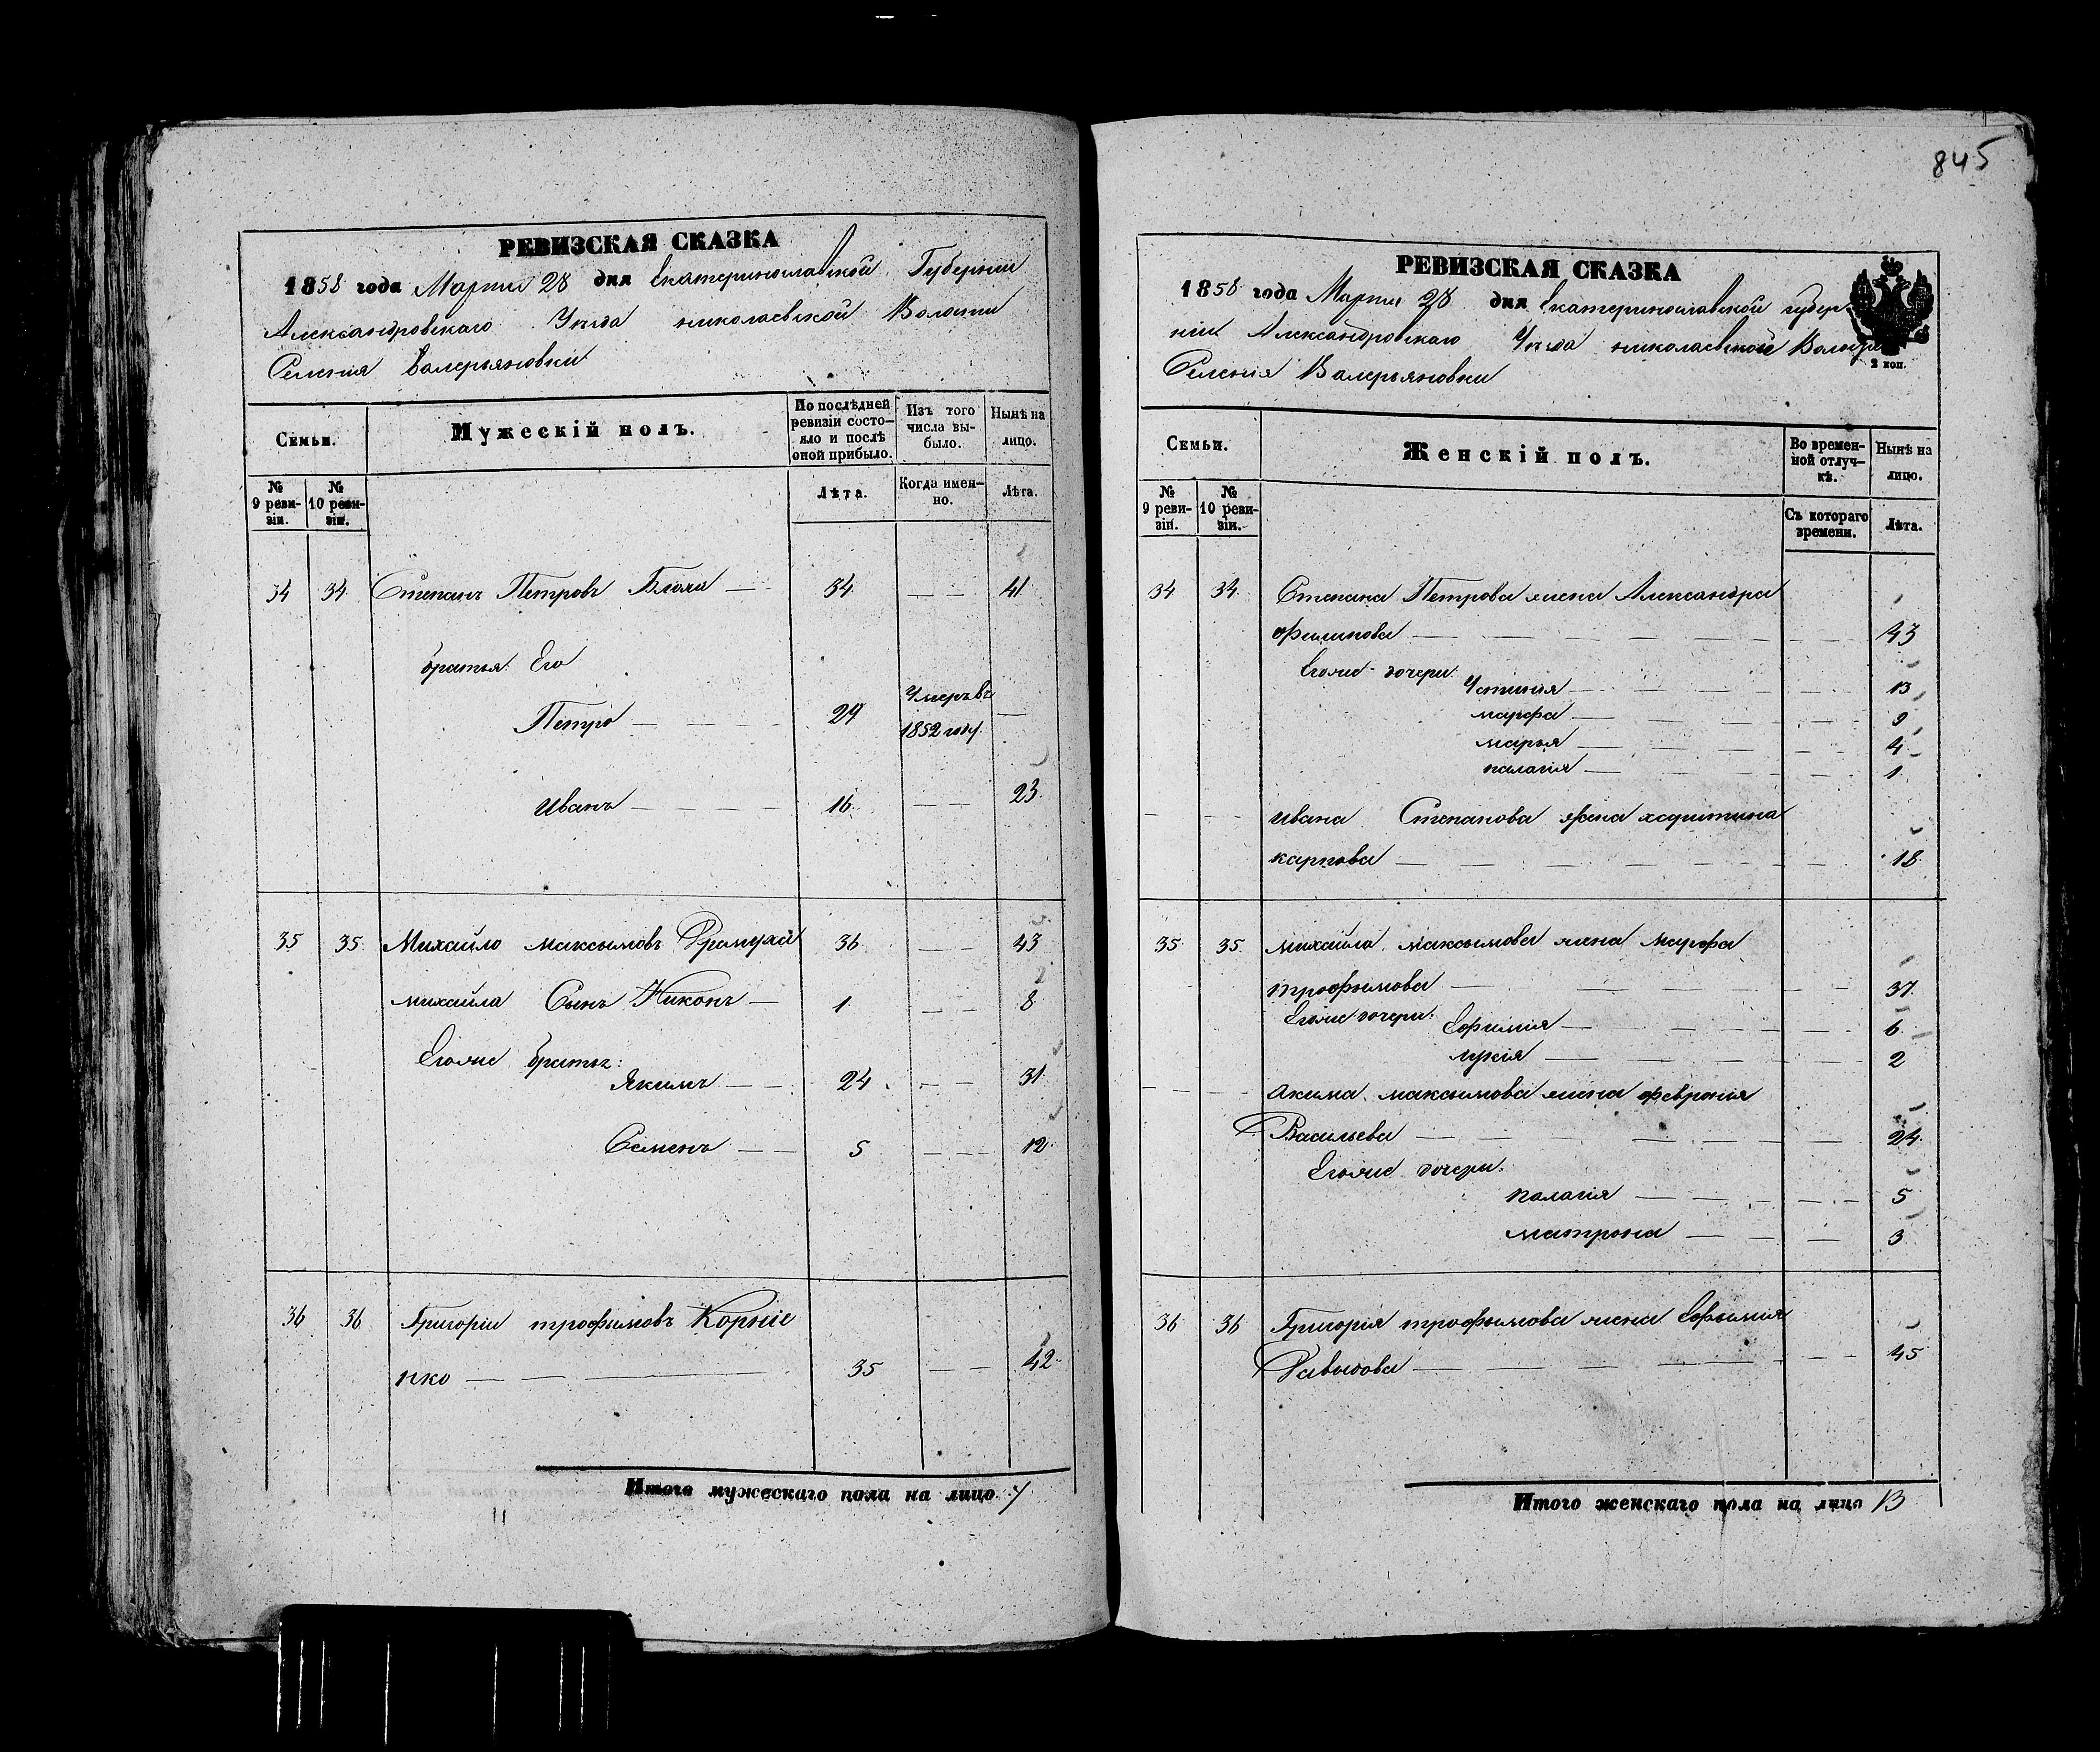 845
РЕВИЗСКАЯ СКАЗКА
1858 года Марта 28 дня Екатеринославской Губернии
Александровскаго Уѣзда николаевской Волости
Селенія Валерьяновки
Семьи.
Мужескій полъ.
По послѣдней ревизіи состояло и послѣ оной прибыло.
Изъ того числа выбыло.
Нынѣ на лицо.
№ 9 ревизіи.
№ 10 ревизіи.
Лѣта.
Когда именно.
Лѣта.
34 34 Степанъ Петровъ — 34 — — 41
братья Его
Петро — — — 27 Умеръ въ 1852 году —
Иванъ — — — 16 — — 23
35 35 Михайло максимовъ 36 — — 43
михайла Сынъ Никонъ — 1 — — 8
Егоже братья:
Якимъ — — 24 — — 31
Семенъ — — 5 — — 12
36 36 Григорій трофимовъ Корніе
нко — — — 35 — — 42
Итого мужескаго пола на лицо 7
РЕВИЗСКАЯ СКАЗКА
1858 года Марта 28 дня Екатеринославской губер
ніи Александровскаго Уѣзда николаевской Волости
Селенія Валерьяновки
2 коп.
Семьи.
Женскій полъ.
Во временной отлучкѣ.
Нынѣ на лицо.
№ 9 ревизіи.
№ 10 ревизіи.
Съ котораго времени.
Лѣта.
34 34 Степана Петрова жена Александра
филипова — — — 43
Егоже дочери:
Устинія — — — 13
марфа — — — 9
марья — — — 4
палагія — — — 1
— — ивана Степанова жена харитина
карпова — — — 18
35 35 михайла максимова жена марфа
трофимова — — — 37
Егоже дочери:
Ефимія — — — 6
лукія — — — 2
— — акима максимова жена февронія
Васильева — — — 24
Егоже дочери:
палагія — — — 5
матрона — — — 3
36 36 Григорія трофимова жена Ефимія
Давыдова — — — 45
Итого женскаго пола на лицо 13